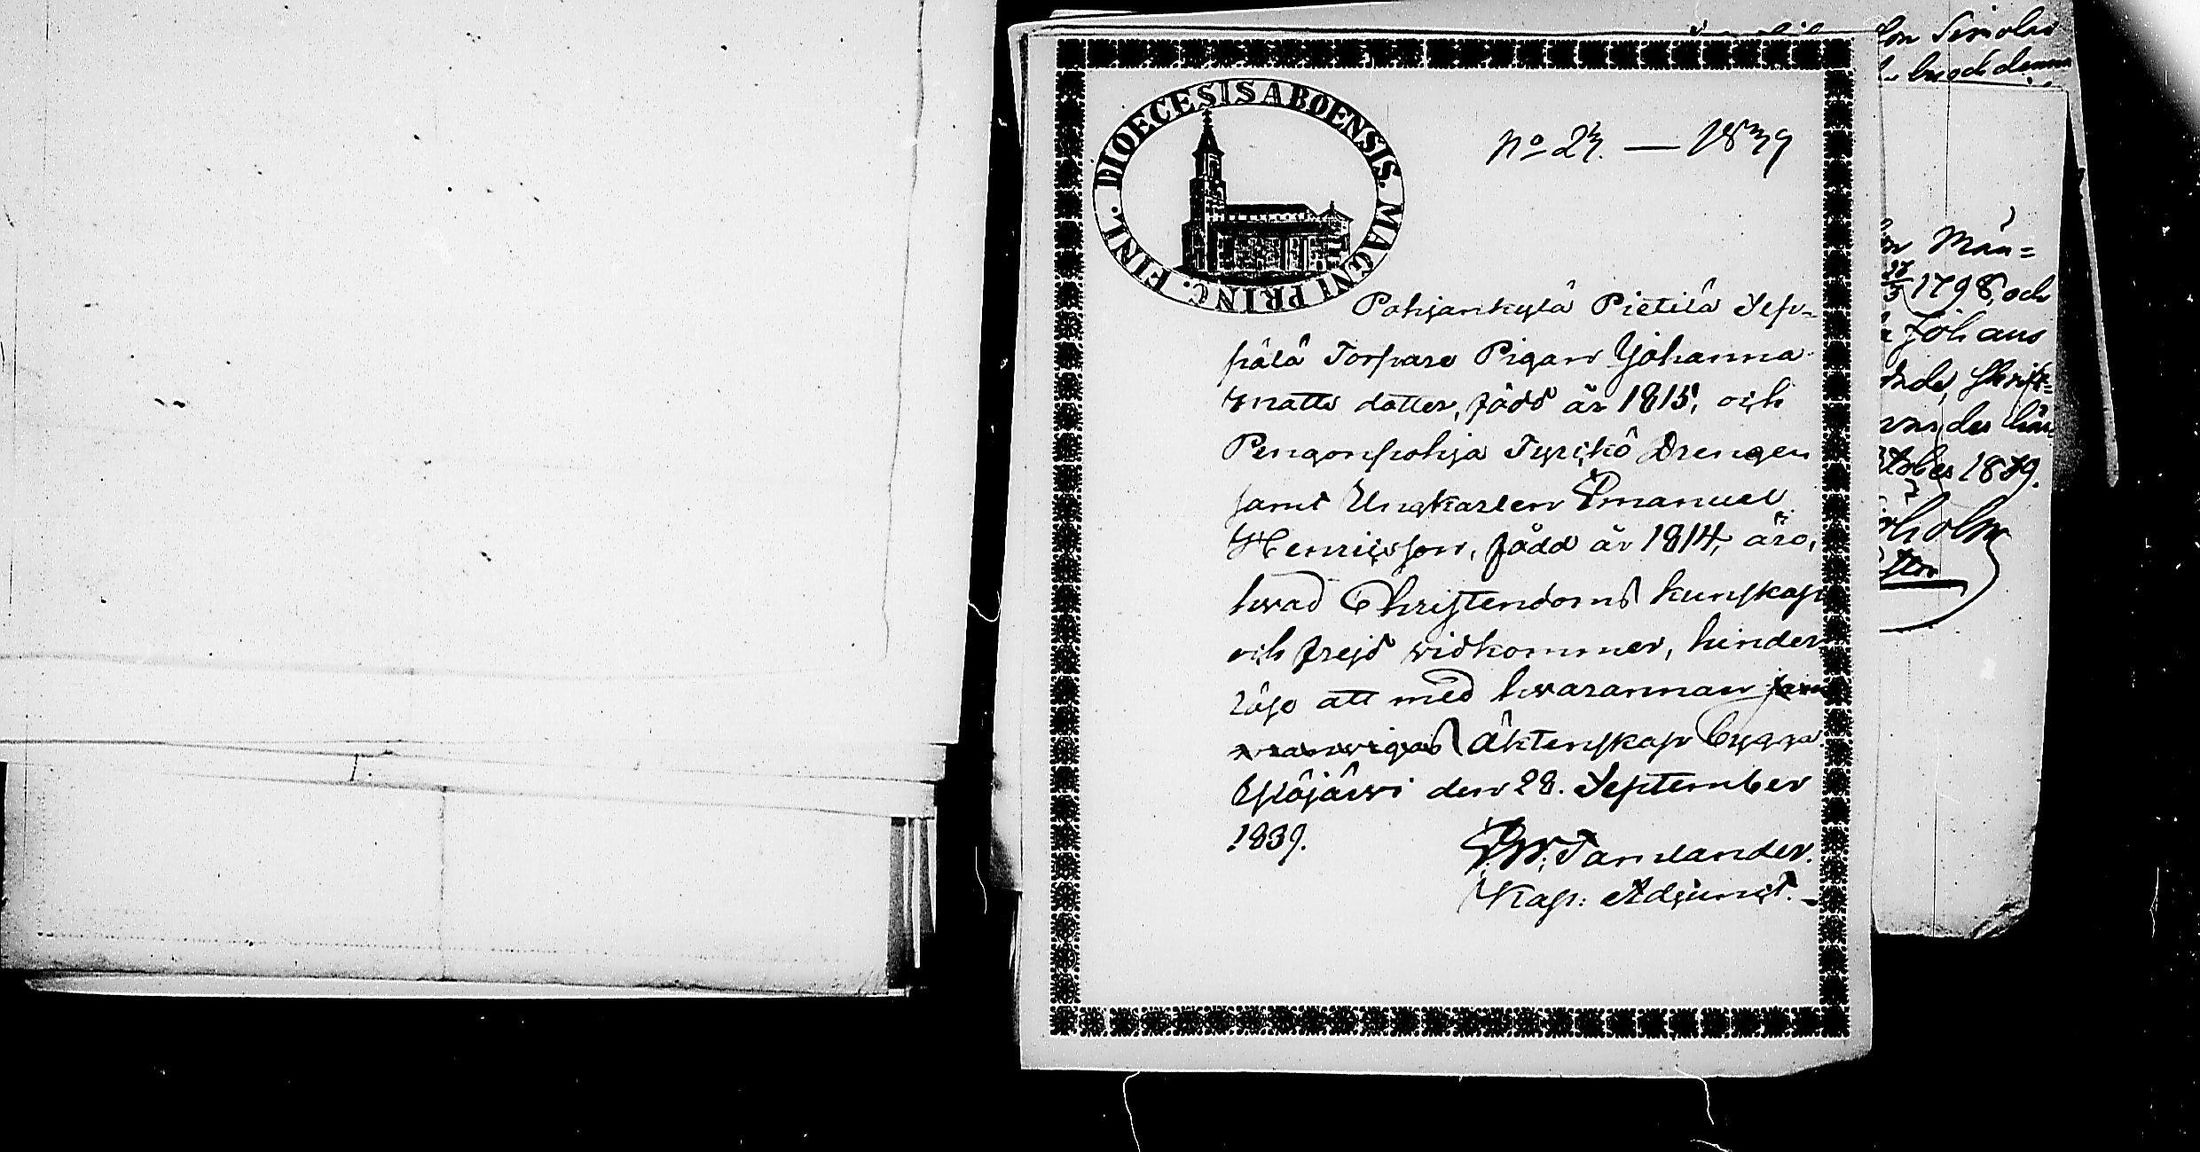 DIOECESIS ABOENSIS. MAGNI PRINC. FINL.
No 23. — 1839
Pohjankylä Pietilä Sep-
pälä Torpare Pigan Johanna
Matts dotter, född år 1815, och
Pengonpohja Tyrckö Drengen
samt Ungkarlen Emanuel
Henricsson, född år 1814, äro,
hvad Christendoms kunskap
och frejd vidkommer, hinder
löse att med hvarannan
äktenskap bygga.
Ylöjärvi den 28. September
1839.
Tamlander.
Kap: Adjunct.
1798, och
Johans
1839.
holm